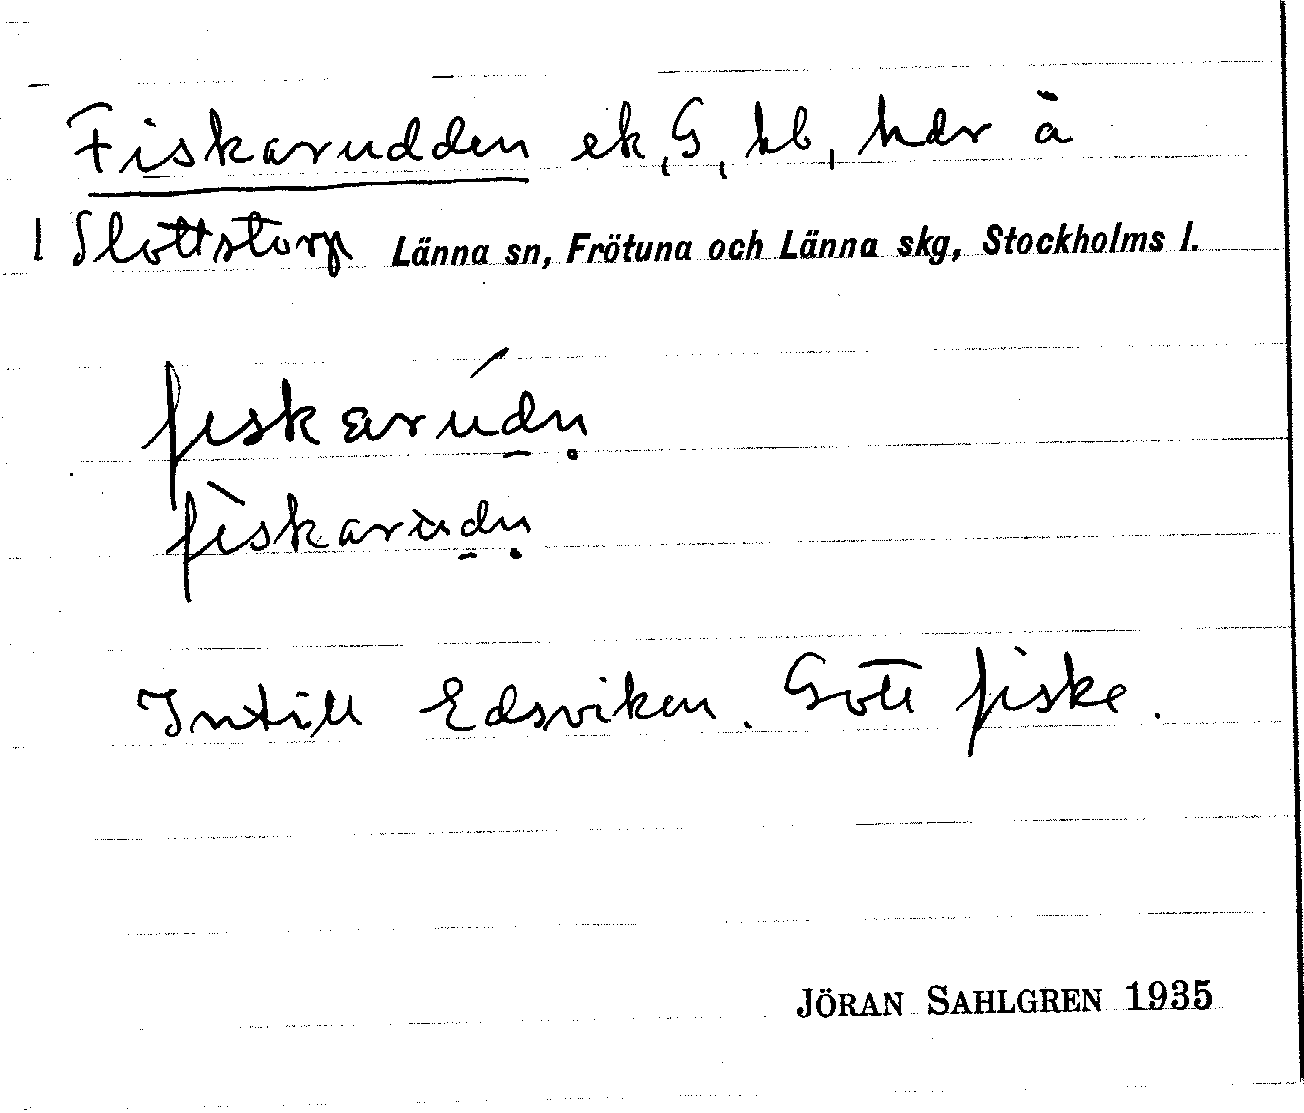 Fiskarudden ek, G, bl, hdr å
1 Slottstorp Länna sn, Frötuna och Länna skg, Stockholms l.
fiskarúdṇ
fìskarùdṇ
Intill Edsviken. Gott fiske.
JÖRAN SAHLGREN 1935